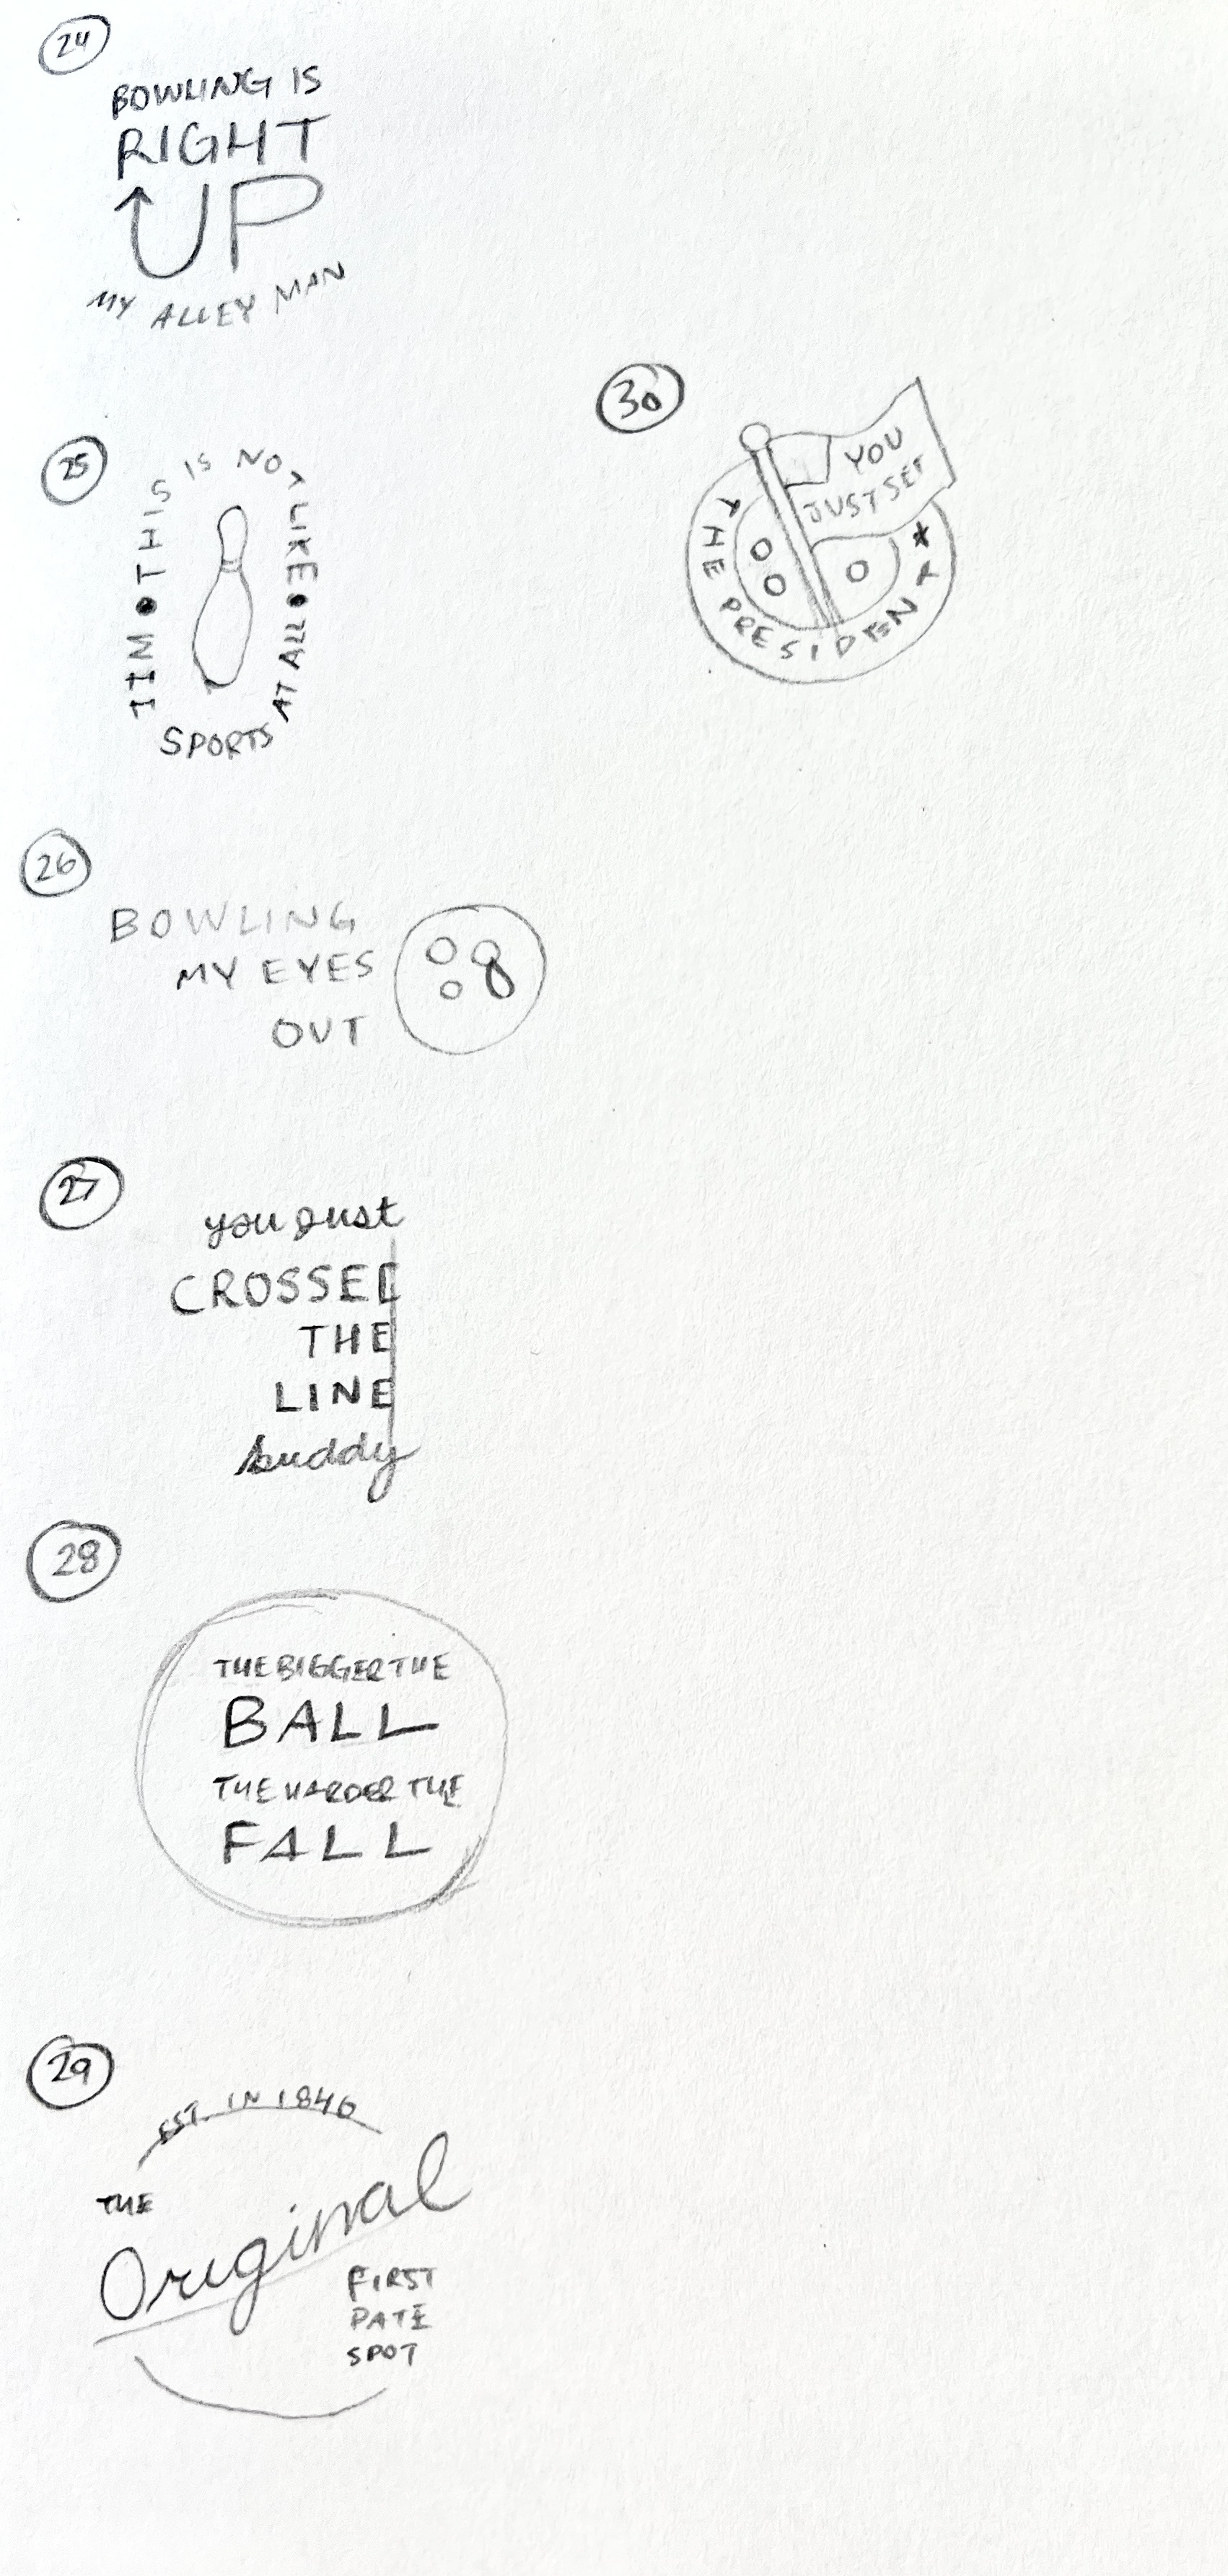 24
BOWLING IS
RIGHT
UP
MY ALLEY MAN
25
JIM • THIS IS NOT LIKE • AT ALL
SPORTS
26
BOWLING
MY EYES
OUT
27
you just
CROSSED
THE
LINE
buddy
28
THE BIGGER THE
BALL
THE HARDER THE
FALL
29
EST. IN 1846
THE
Original
FIRST
DATE
SPOT
30
YOU
JUST SET
THE PRESIDENT